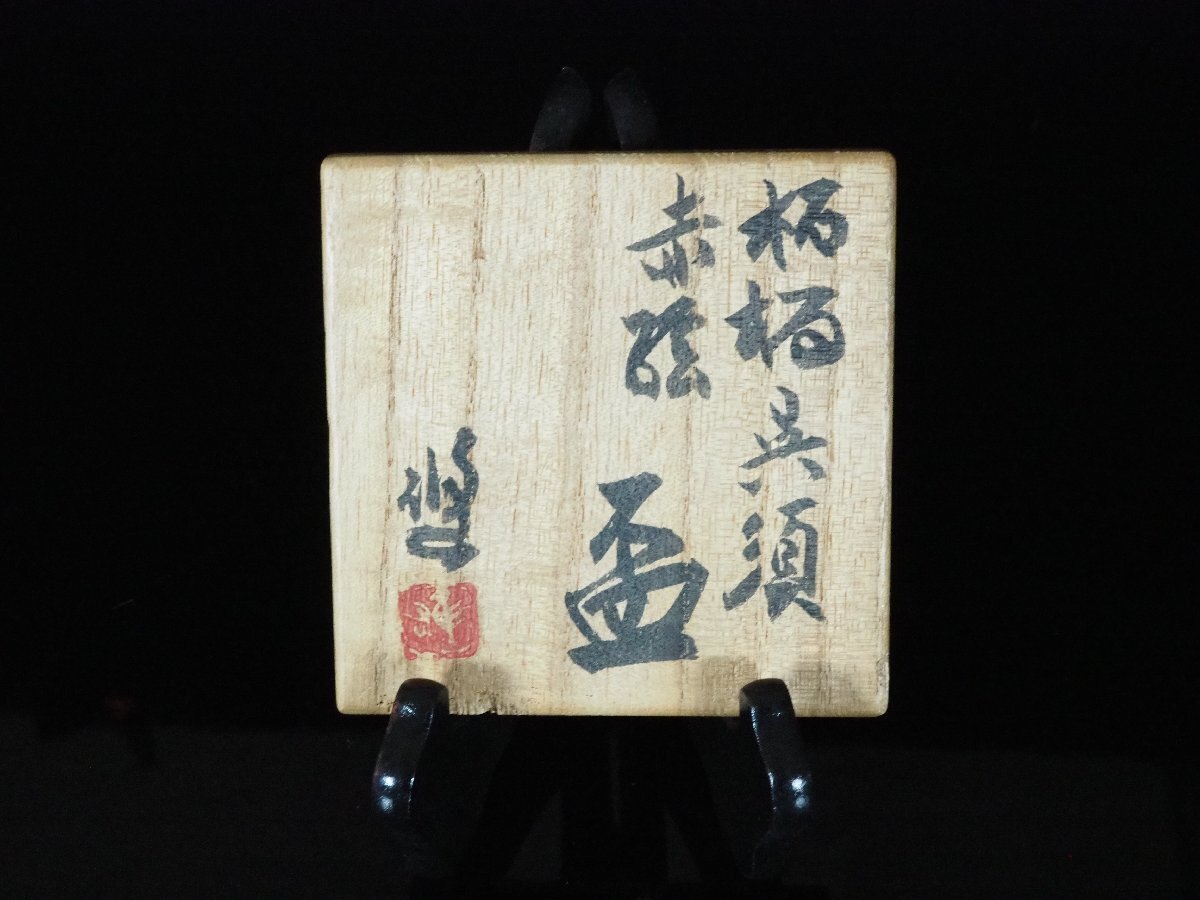 柘榴呉須
赤絵 盃
悠